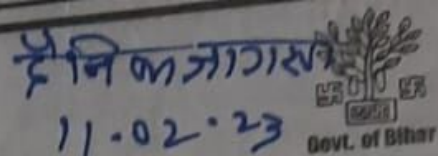 दैनिक जागरण
11.02.23
Govt. of Bihar